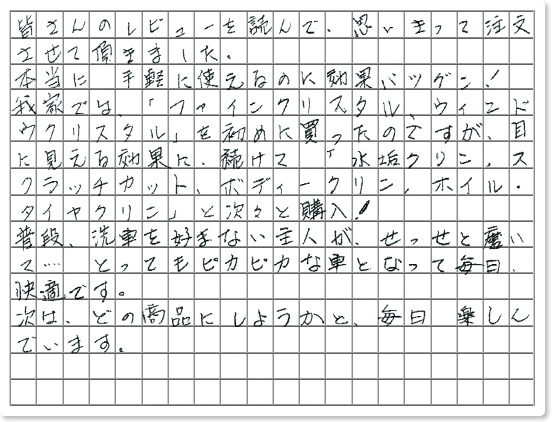 皆さんのレビューを読んで、思いきって注文
させて頂きました。
本当に 手軽に使えるのに効果バツグン!
我家では、「ファインクリスタル、ウィンド
ウクリスタル」を初めに買ったのですが、目
に見える効果に、続けて 「水垢クリン、ス
クラッチカット、ボディークリン、ホイル・
タイヤクリン」と次々と購入!
普段、洗車を好まない主人が、せっせと磨い
て…… とってもピカピカな車となって毎日、
快適です。
次は、どの商品にしようかと、毎日 楽しん
でいます。